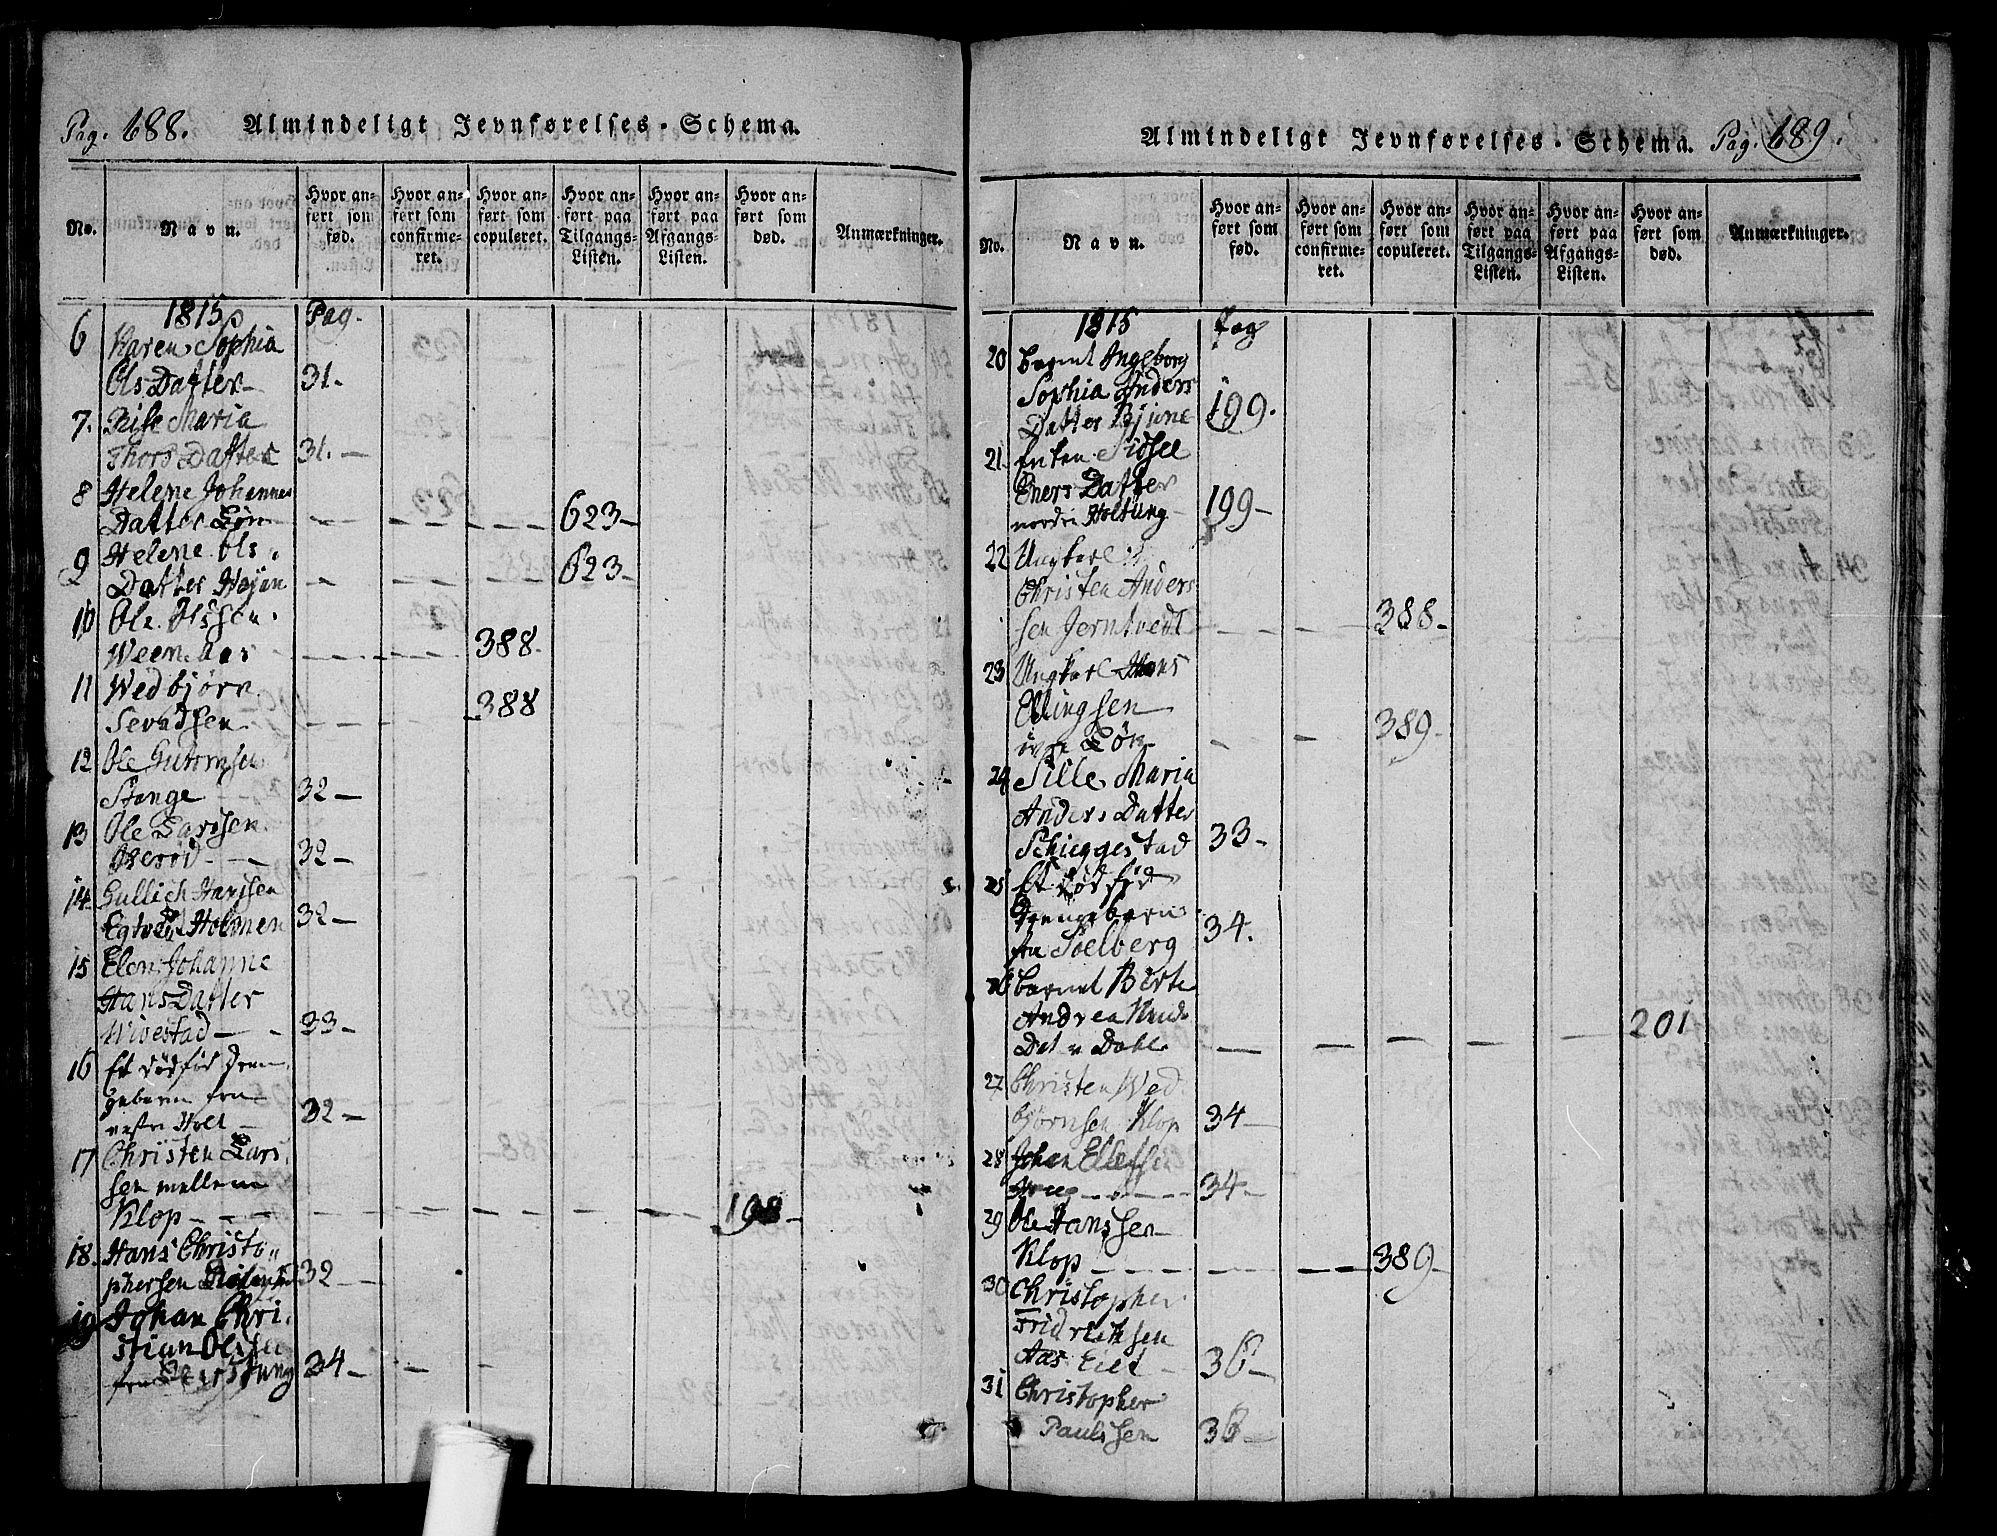 Pag. 688.
Almindeligt Jevnførelses-Schema.
No.
Navn.
Hvor anført som fød.
Hvor anført som confirmeret.
Hvor anført som copuleret.
Hvor anført paa Tilgangs-Listen.
Hvor anført paa Afgangs-Listen.
Hvor anført som død.
Anmærkninger.
1815 Pag.
6 Karen Sophia
Ols Datter 31.
7. Maria
Thors Datter 31.
8 Helene Johannes
Datter Løn 623
9 Helene Ols
Datter Højen 623
10 Ole
388
11 Wedbjørn
388
12 Ole
Stange 32
13 Ole Larssen
32
14 Gullich Hanssen
Holmen 32
15 Elen Johanne
Hans Datter
Wivestad 33
16 Et dødfød Drenge
barn fra
Holt 32
17 Christen Lars
sen mellem
Klop 198
18. Hans Christo
phersen 32
19 Johan Chri
stian Olssen
fra 34
Almindeligt Jevnførelses-Schema. Pag. 689.
No.
Navn.
Hvor anført som fød.
Hvor anført som confirmeret.
Hvor anført som copuleret.
Hvor anført paa Tilgangs-Listen.
Hvor anført paa Afgangs-Listen.
Hvor anført som død.
Anmærkninger.
1815 Pag
20 Barnet Ingeborg
Sophia Anders
Datter 199.
21. Enken Sidsel
Datter
nordre Holtung 199
22 Ungkarl
Christen Anders
sen Jerntvedt 388
23 Ungkarl Hans
Ellingsen
øvre Løn 389
24 Sille Maria
Anders Datter
Schieggestad 33
25 Et dødfød
Drengebarn
fra Soelberg 34.
26 Barnet Berte
Andrea Knuds
Dat 201
27 Christen Wed
bjørnsen Klop 34
28 Johan Ellefsen
34
29 Ole Hanssen
Klop 389
30 Christopher
Fridrichsen
36
31 Christopher
Paulssen 36